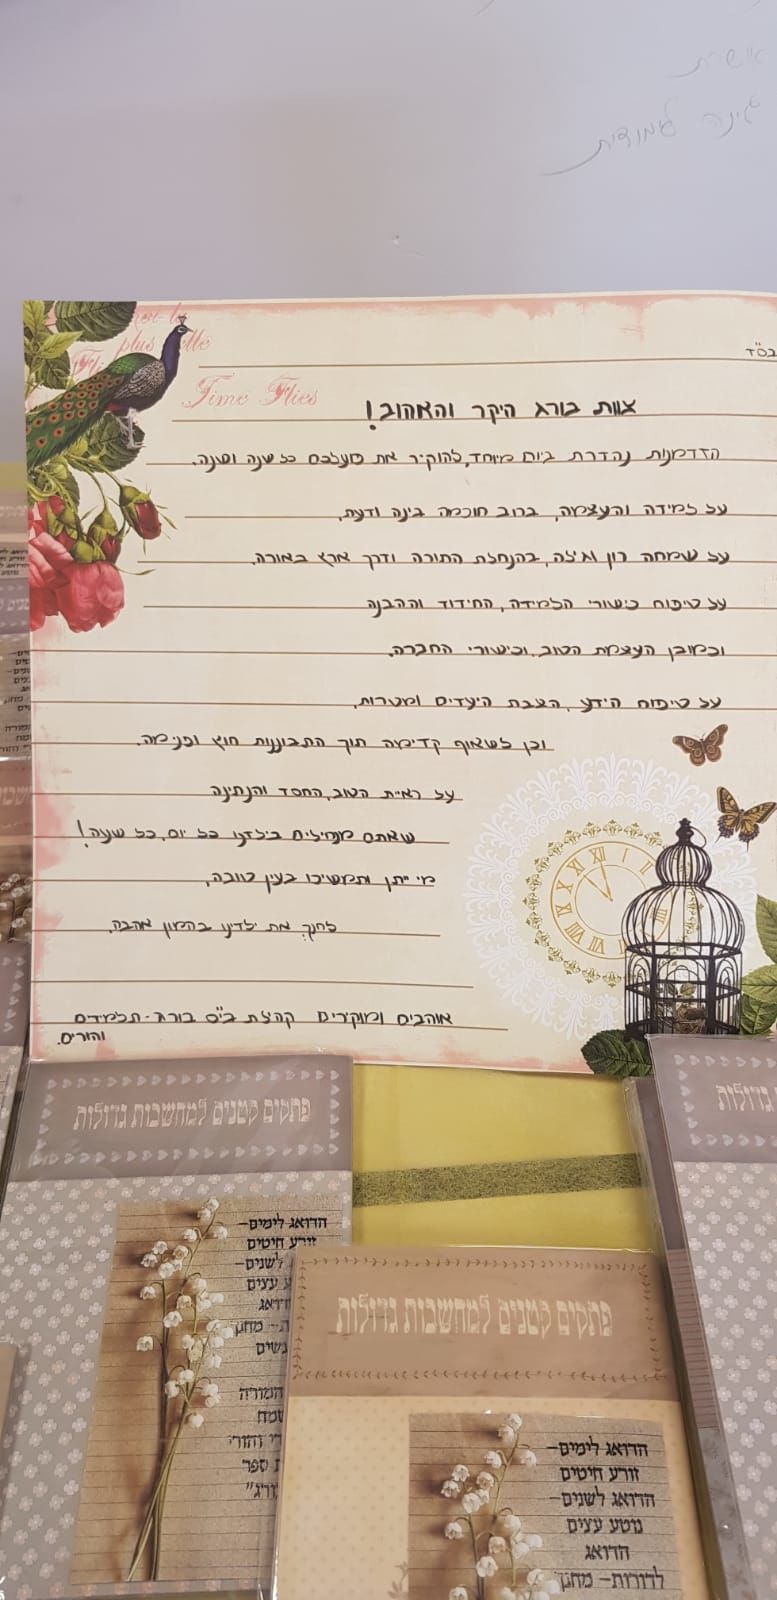 אישית
בס"ד
Time Flies
צוות בורג היקר והאהוב!
הזדמנות נהדרת ביום מיוחד, להוקיר את פועלכם כל שנה ושנה.
על למידה והעצמה, ברוב חוכמה בינה ודעת.
על שמחה רון וגילה, בהנחלת התורה ודרך ארץ באורה.
על טיפוח כישורי הלמידה, החידוד וההבנה
וכמובן העצמת הטוב, וכישורי החברה.
על טיפוח הידע, הצבת היעדים ומטרות.
וכן לשאוף קדימה תוך התבוננות חוץ ופנימה.
על ראיית הטוב, החסד והנתינה
שאתם מנחילים בילדנו כל יום, כל שנה!
מי ייתן ותמשיכו בעין טובה,
לחנך את ילדינו בהמון אהבה.
אוהבים ומוקירים קהלת בי"ס בורג - תלמידים
והורים.
פתקים קטנים למחשבות גדולות
הדואג לימים–
זורע חיטים
לשנים–
עצים
פתקים קטנים למחשבות גדולות
הדואג לימים–
זורע חיטים
הדואג לשנים–
נוטע עצים
הדואג
לדורות– מחנך
גדולות